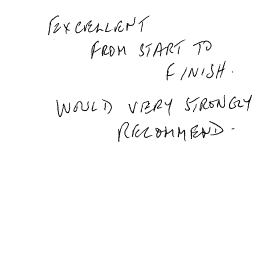 EXCELLENT
FROM START TO
FINISH.
WOULD VERY STRONGLY
RECOMMEND.